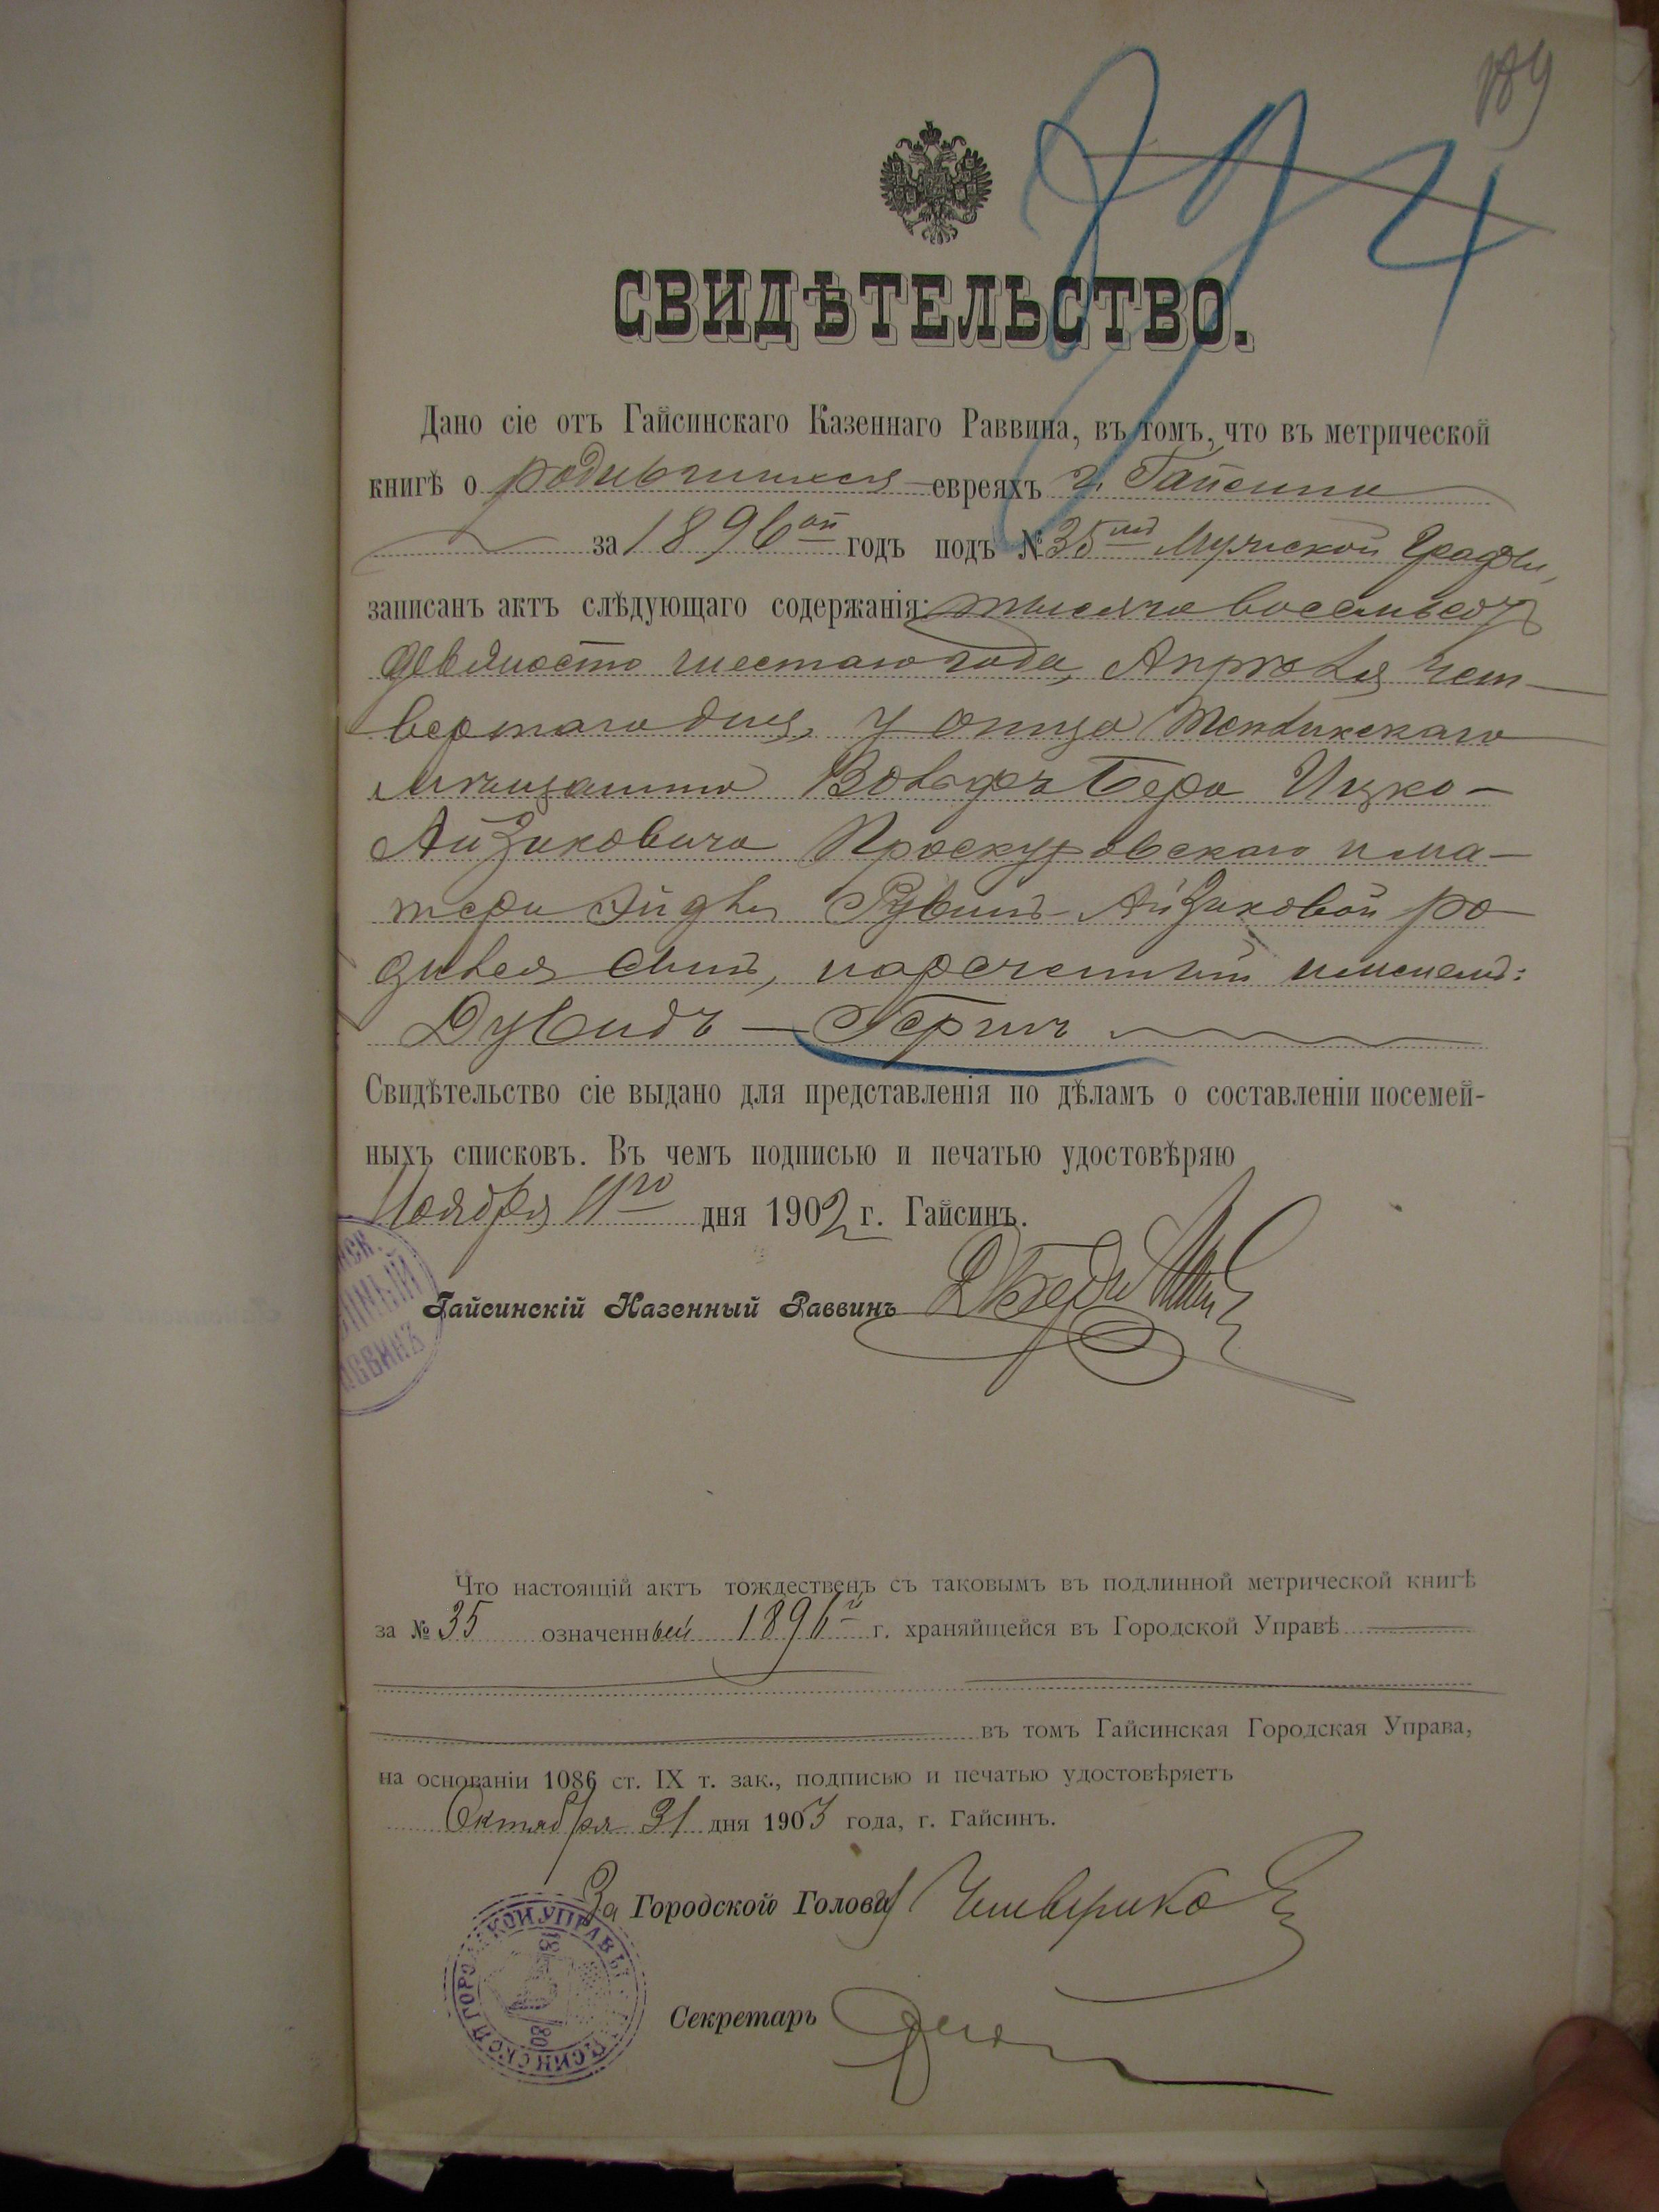 189
СВИДѢТЕЛЬСТВО.
Дано сіе отъ Гайсинскаго Казеннаго Раввина, въ томъ, что въ метрической
книгѣ о родившихся евреяхъ г. Гайсина
за 1896ой годъ подъ № 35мъ мужской графы,
записанъ актъ слѣдующаго содержанія: тысяча восемьсотъ
девяносто шестаго года, Апрѣля чет-
вертаго дня, у отца Тепликскаго
мѣщанина Вольфъ Бера Ицко-
Айзиковича Проскуровскаго и ма-
тери Эйдли Рувинъ-Айзиковой ро-
дился сынъ, нареченный именемъ:
Дувидъ — Гершъ
Свидѣтельство сіе выдано для представленія по дѣламъ о составленіи посемей-
ныхъ списковъ. Въ чемъ подписью и печатью удостовѣряю
Ноября 11го дня 1902 г. Гайсинъ.
Гайсинскій Казенный Раввинъ
Что настоящій актъ тождественъ съ таковымъ въ подлинной метрической книгѣ
за № 35 означенный 1896й г. храняйщейся въ Городской Управѣ
въ томъ Гайсинская Городская Управа,
на основаніи 1086 ст. IX т. зак., подписью и печатью удостовѣряетъ
Октября 31 дня 1903 года, г. Гайсинъ.
За Городской Голова Чивериков
Секретарь